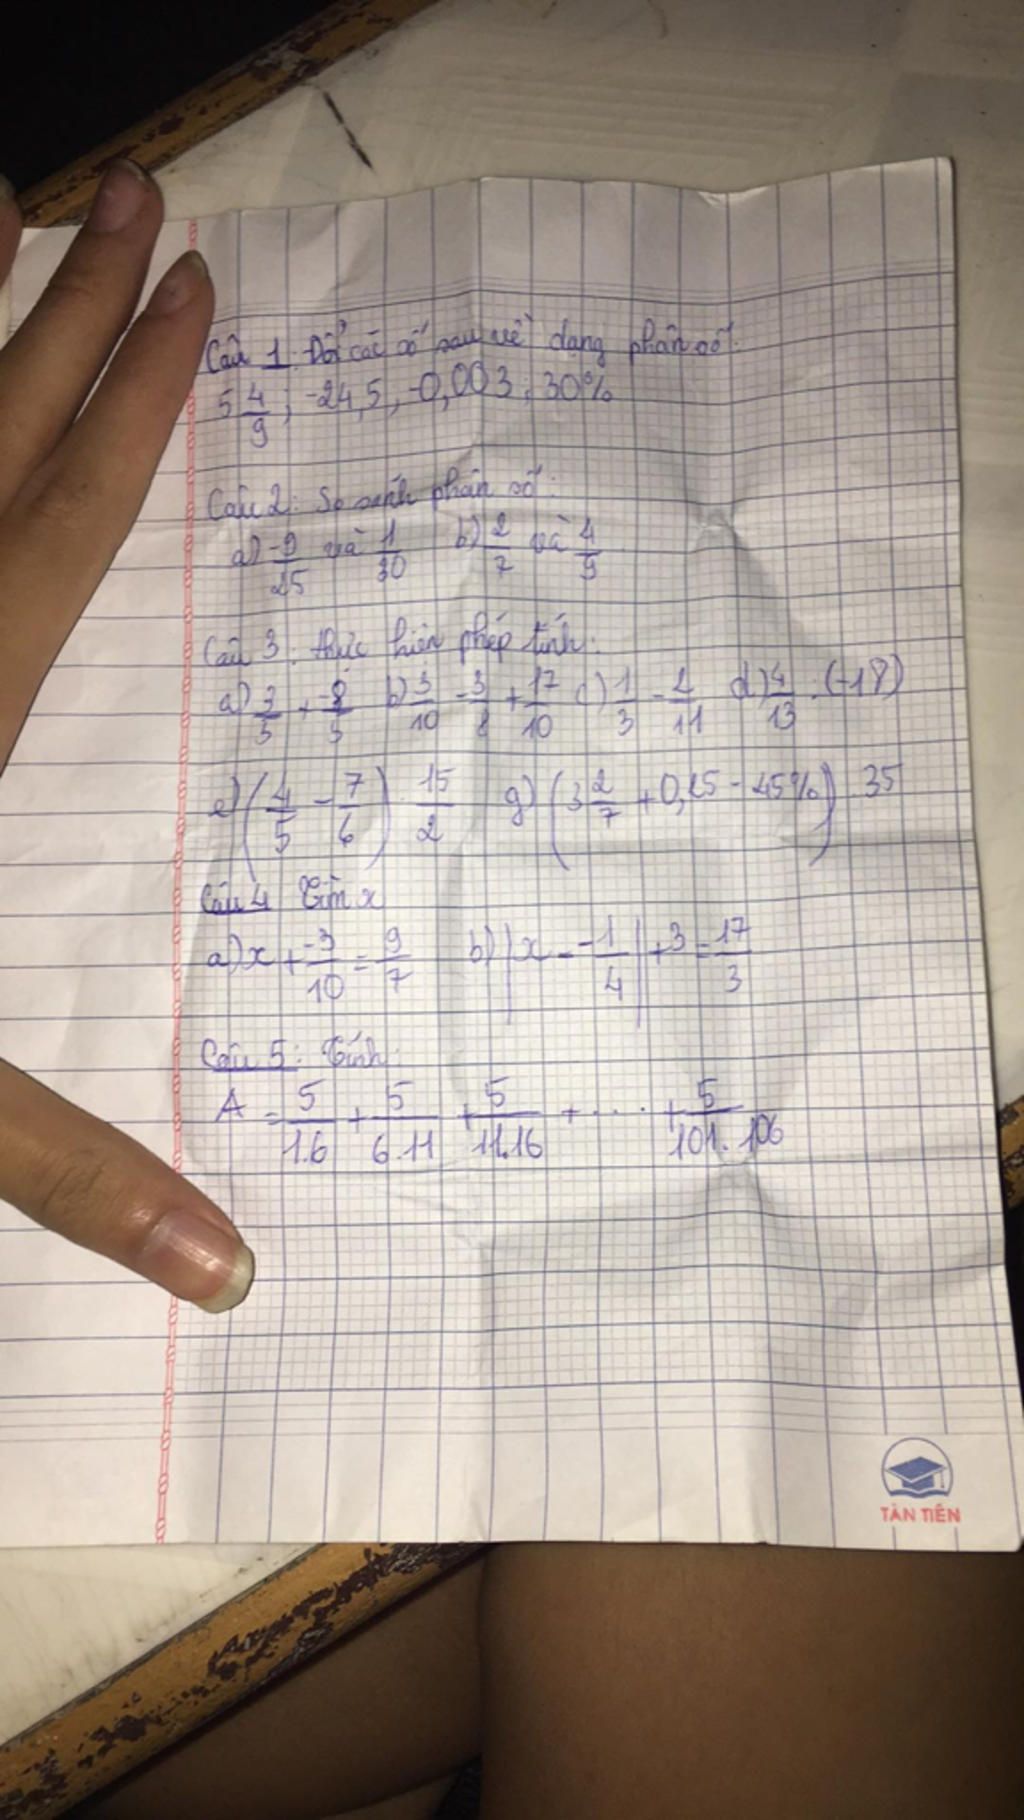 Câu 1: Đổi các số sau về dạng phân số:
5 4/9 ; -24,5 , -0,003 ; 30%
Câu 2: So sánh phân số:
a) -9/25 và 1/30 b) 2/7 và 4/9
Câu 3: thực hiện phép tính:
a) 3/5 + -8/5 b) 3/10 - 3/8 + 17/10 c) 1/3 - 2/11 d) 4/13 : (-18)
e) (4/5 - 7/6) . 15/2 g) (3 2/7 + 0,25 - 45%) . 35
Câu 4 Tìm x
a) x + -3/10 = 9/7 b) |x - -1/4| + 3 = 17/3
Câu 5: Tính:
A = 5/1.6 + 5/6.11 + 5/11.16 + .... + 5/101.106
TÂN TIẾN